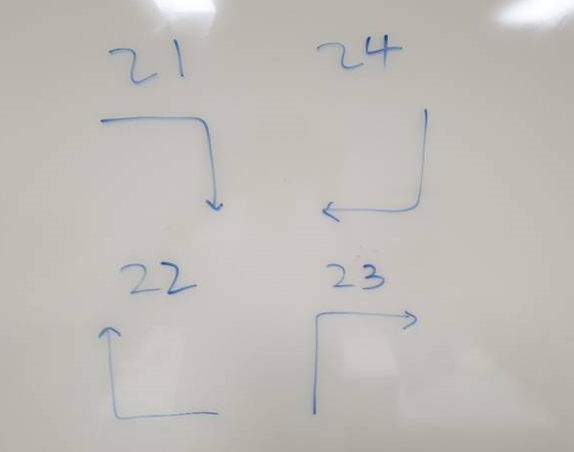 21 24
22 23